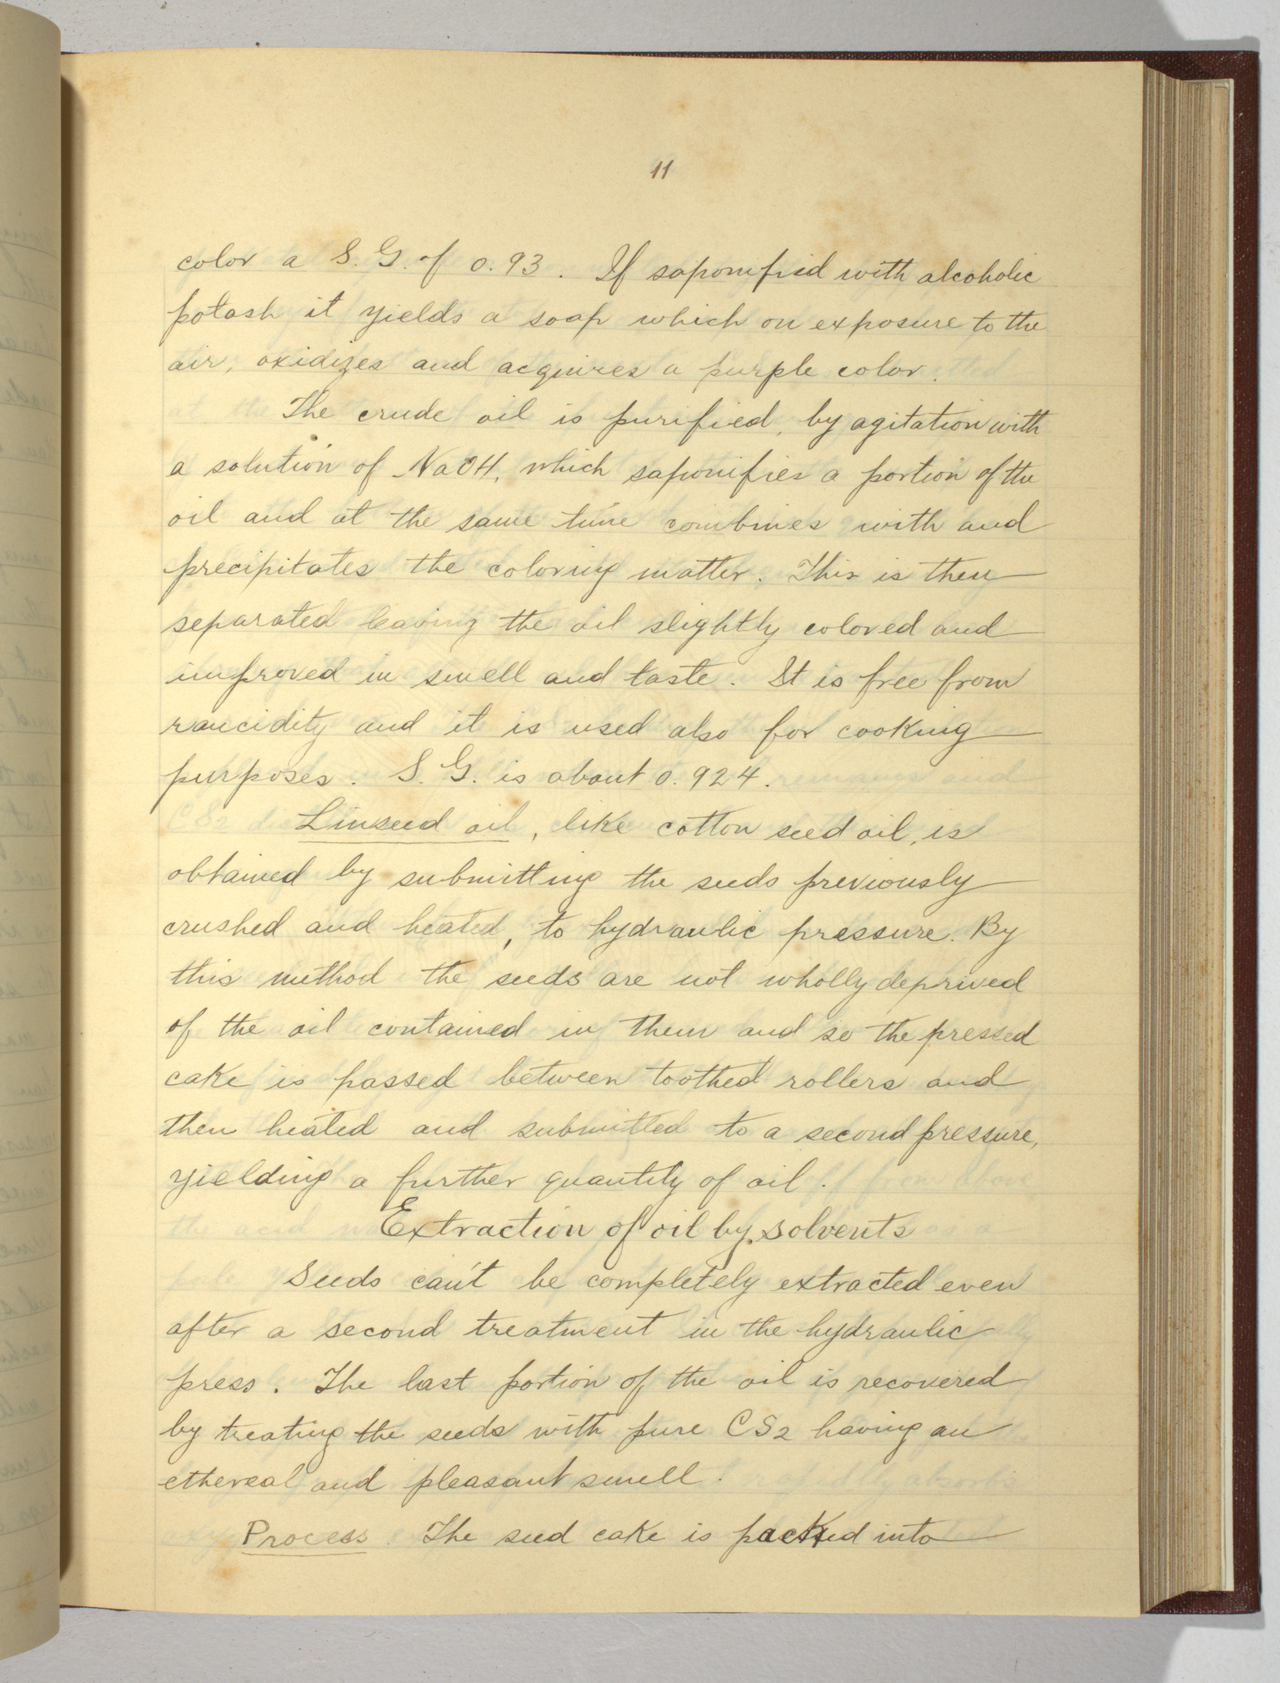 11
color a S. G. of 0.93. If saponified with alcoholic
potash it yields a soap which on exposure to the
air, oxidizes and acquires a purple color.
The crude oil is purified, by agitation with
a solution of NaOH, which saponifies a portion of the
oil and at the same time combines with and
precipitates the coloring matter. This is then
separated leaving the oil slightly colored and
improved in smell and taste. It is free from
rancidity and it is used also for cooking
purposes. S. G. is about 0.924.
Linseed oil, like cotton seed oil, is
obtained by submitting the seeds previously
crushed and heated, to hydraulic pressure. By
this method the seeds are not wholly deprived
of the oil contained in them and so the pressed
cake is passed between toothed rollers and
then heated and submitted to a second pressure,
yielding a further quantity of oil.
Extraction of oil by solvents
Seeds can't be completely extracted even
after a second treatment in the hydraulic
press. The last portion of the oil is recovered
by treating the seeds with pure CS2 having an
ethereal and pleasant smell.
Process. The seed cake is packed into